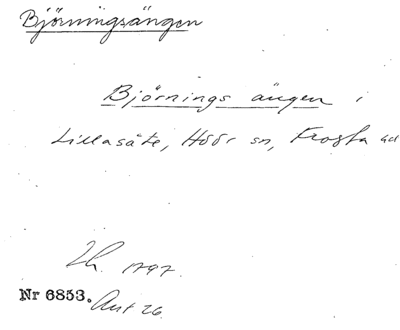 Björningsängen
Björnings ängen i
Lillasäte, Höör sn, Frosta hd
Lh. 1797.
Nr 6853. Aut 26